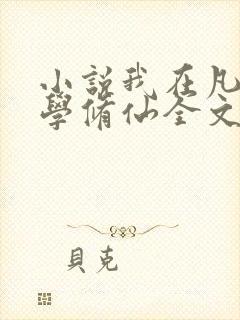 小說我在凡
學脩仙全文
貝克